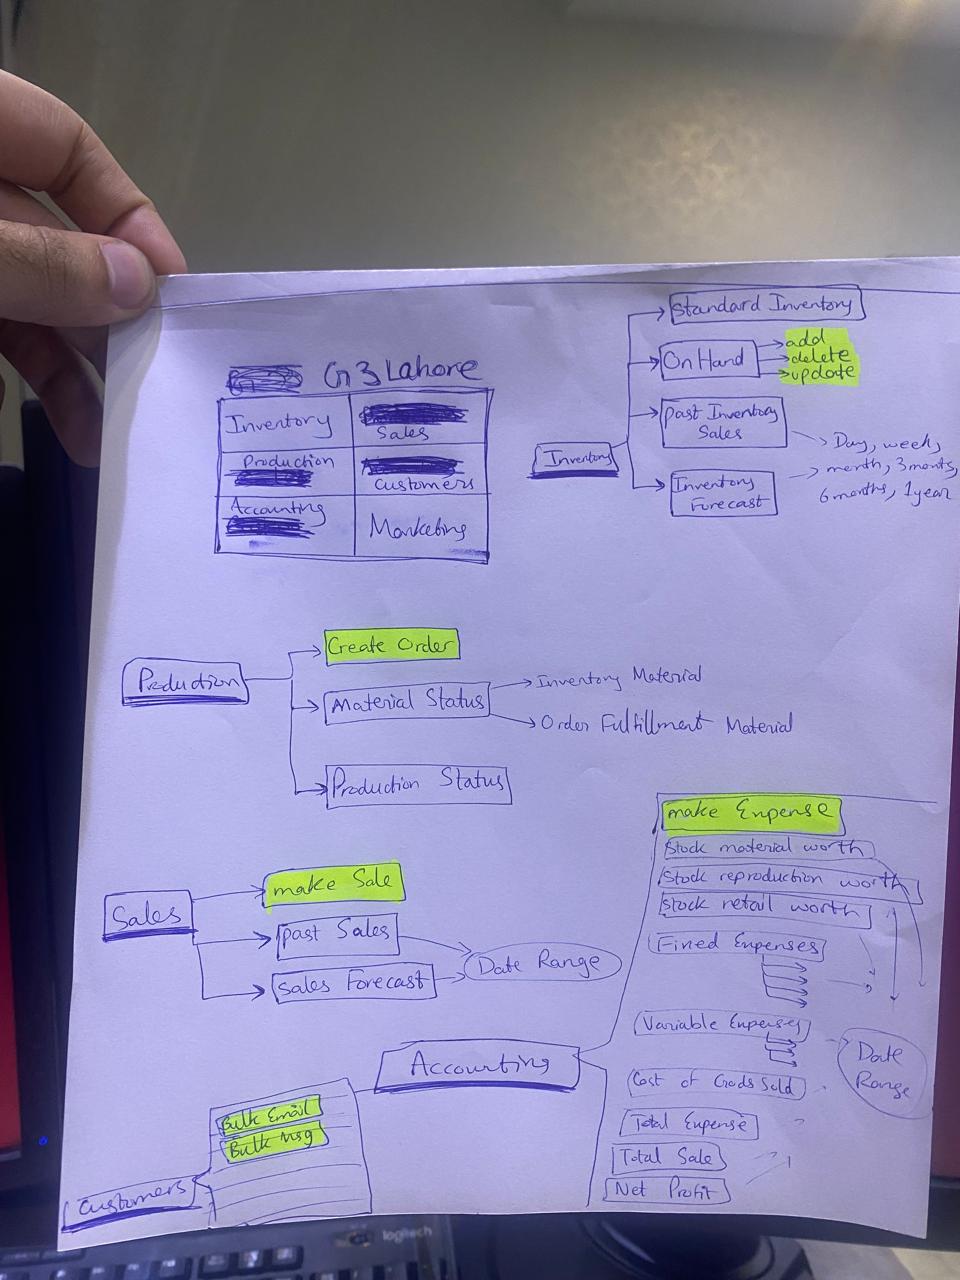 G3 Lahore
Inventory
Sales
Production
Customers
Accounting
Marketing
Inventory
Standard Inventory
On Hand
add
delete
update
past Inventory
Sales
Inventory
Forecast
Day, week,
month, 3 monts,
6 months, 1 year
Production
Create Order
Material Status
Inventory Material
Order Fulfillment Material
Production Status
Sales
make Sale
past Sales
Sales Forecast
Date Range
Accounting
make Expense
Stock material worth
Stock reproduction worth
Stock retail worth
Fixed Expenses
Variable Expenses
Cost of Goods Sold
Total Expense
Total Sale
Net Profit
Date
Range
Customers
Bulk Email
Bulk Msg
logitech